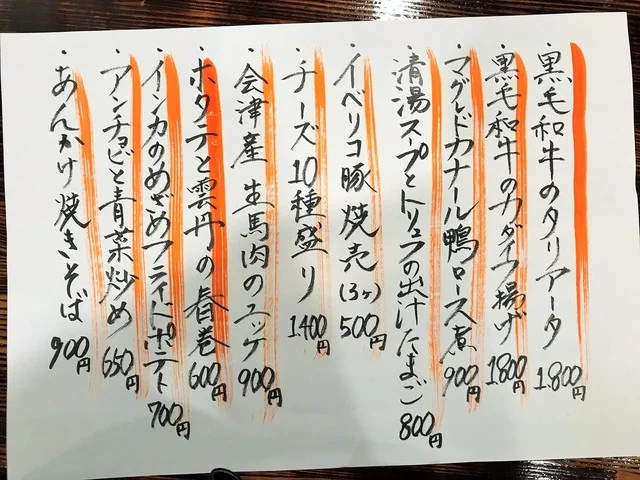 ・黒毛和牛のタリアータ 1.800円
・黒毛和牛のカダイフ揚げ 1.800円
・マグレドカナール鴨ロース煮 900円
・清湯スープとトリュフの出汁たまご 800円
・イベリコ豚焼売(3ヶ) 500円
・チーズ10種盛り 1400円
・会津産 生馬肉のユッケ 900円
・ホタテと雲丹の春巻 600円
・インカのめざめフライドポテト 700円
・アンチョビと青菜炒め 650円
・あんかけ焼きそば 900円